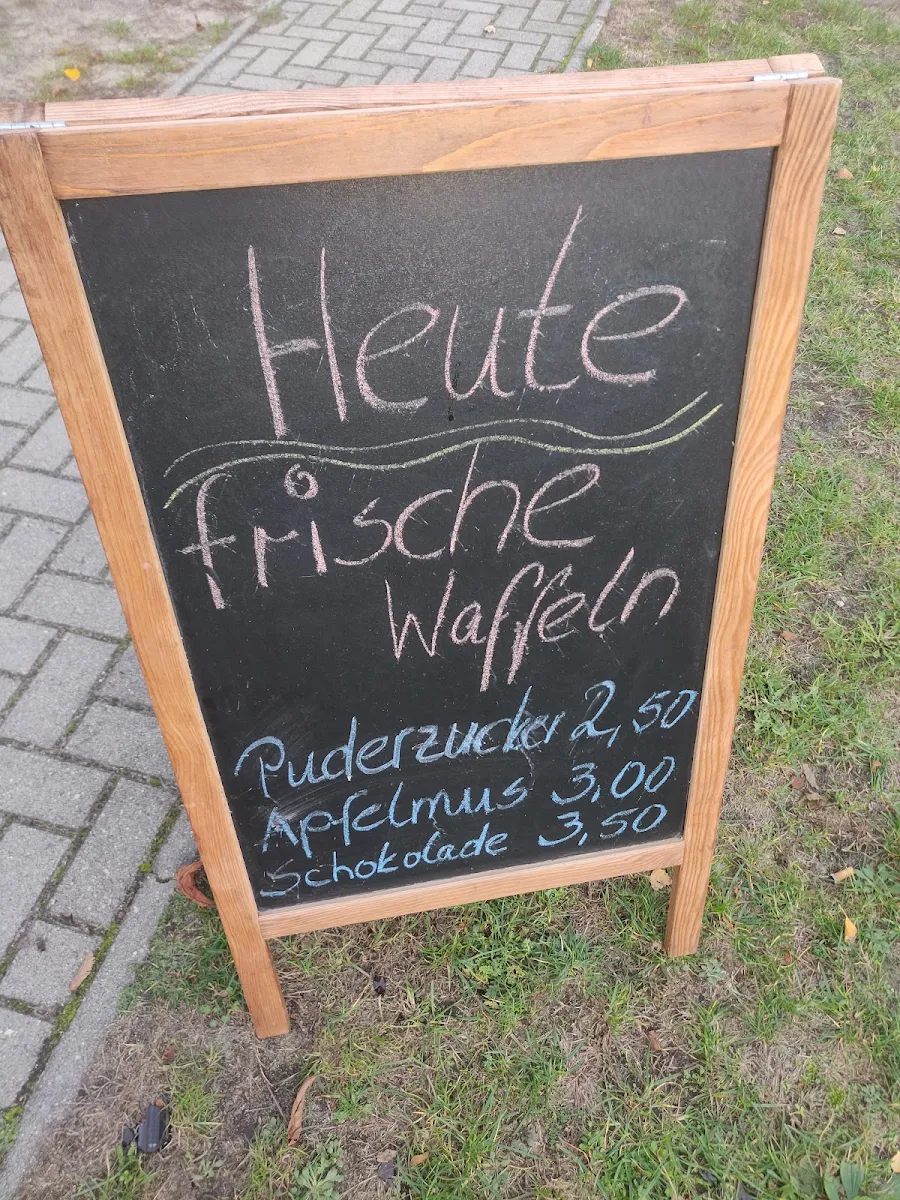 Heute
frische
Waffeln
Puderzucker 2,50
Apfelmus 3,00
Schokolade 3,50